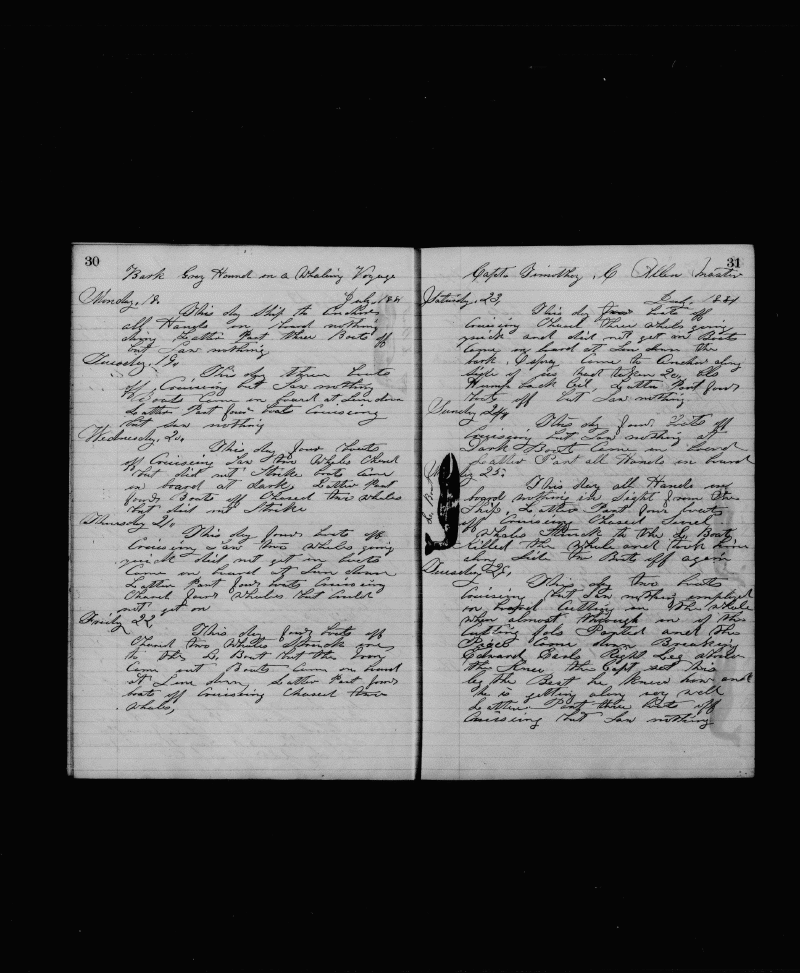 30
Bark Grey Hound on a Whaling Voyage
Monday, 18, July, 1881
This day Ship to Anchor
all Hands on board nothing
doing Latter Part three Boats off
but Saw nothing
Tuesday, 19
This day three boats
off Cruising but Saw nothing
Boats Came on board at Sun down
Latter Part four boats Cruising
but saw nothing
Wednesday, 20,
This day four boats
off Cruising Saw two Whales Chased
but did not Strike boats Came
on board at dark Latter Part
four Boats off Chased two whales
but did not Strike
Thursday 21,
This day four boats off
Cruising saw two Whales going
quick did not get on boats
Came on board at Sun down
Latter Part four boats Cruising
Chased four Whales but Could
not get on
Friday 22
This day four boats off
Chased two Whales Struck one
to the Boat but the Iron
Came out Boats Came on board
at Sun down Latter Part four
boats off Cruising Chased
Whales,
31
Capt Timothy, C Allen Master
Saturday, 23, 1881
This day four boats off
Cruising Chased three whales going
quick and did not get on Boats
Came on board at Sun down the
bark Come to Anchor along
Side of us had taken 20, bls
Hump back Oil, Latter Part four
boats off but Saw nothing
Sunday 24,
This day four boats off
Cruising but Saw nothing at
Dark Boats Came on board
Latter Part all Hands on board
25,
This day all Hands on
board nothing in Sight from the
Ship Latter Part four boats
off Cruising Chased
Whales Struck to the Boat
killed the Whale and took him
along Side Boats off again
Boat
Tuesday 26,
This day two boats
Cruising but Saw nothing employed
on board Cutting in the whale
when almost through one of the
Cutting falls Parted and the
Came down Breaking
Edward Right Leg above
the Knee the Capt set his
leg the Best he knew how and
he is getting along very well
Latter Part three boats off
Cruising but Saw nothing